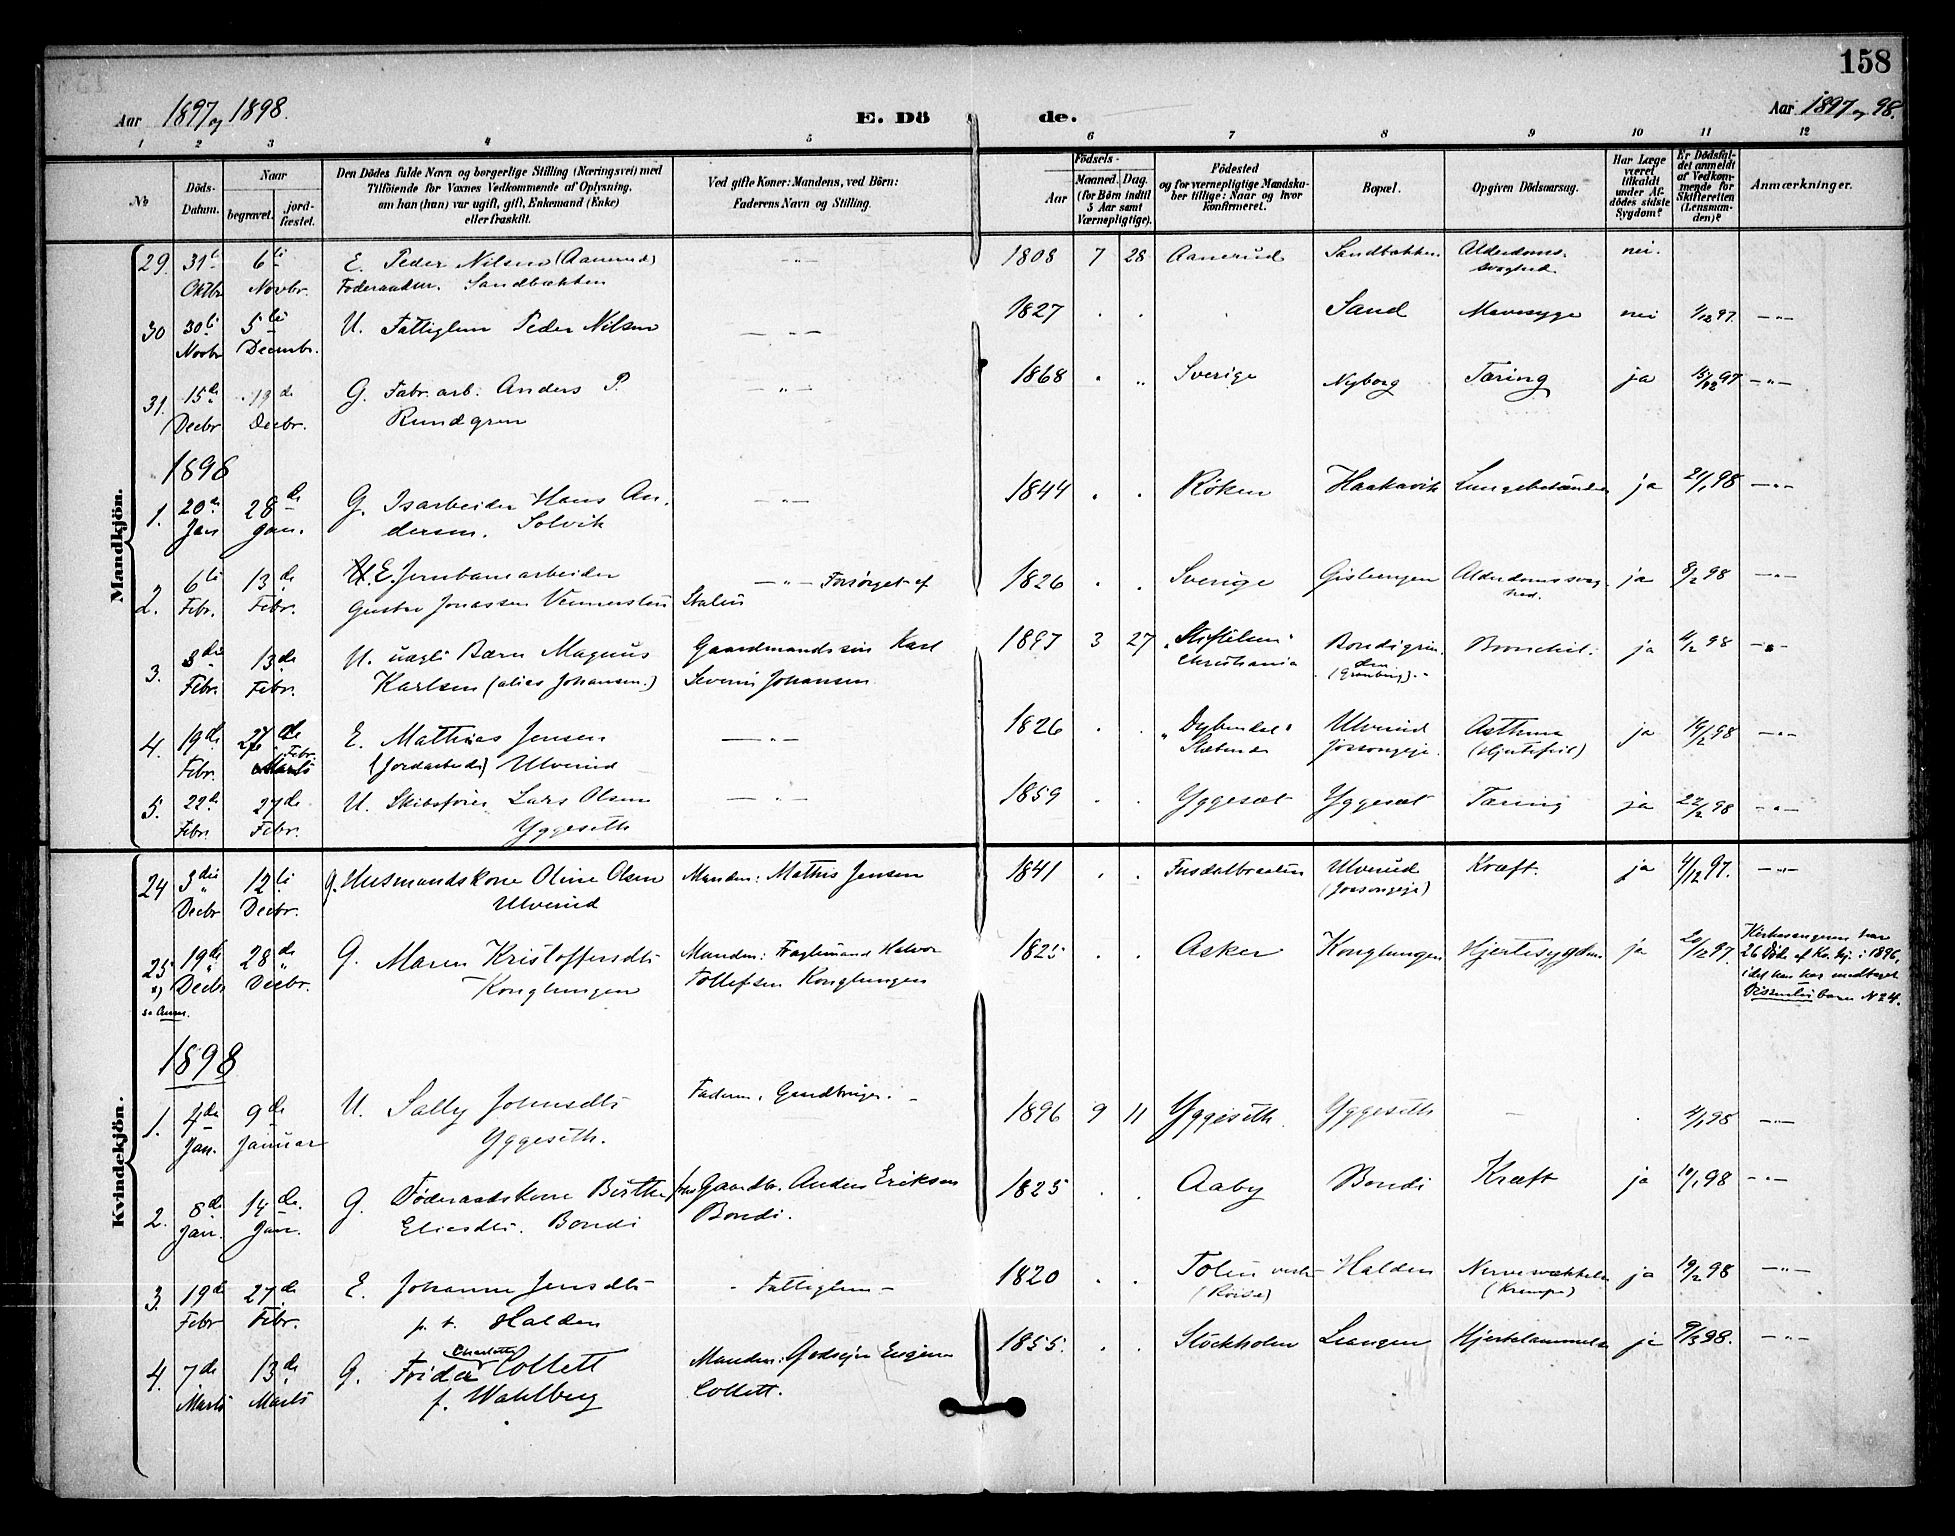 158
Aar 1897 og 1898.
E. Döde.
Aar 1897 og 98.
1 2 3 4 5 6 7 8 9 10 11 12
No
Döds-Datum.
Naar
begravet.
jordfæstet.
Den Dödes fulde Navn og borgerlige Stilling (Næringsvei) med
Tilföiende for Voxnes Vedkommende af Oplysning,
om han (hun) var ugift, gift, Enkemand (Enke)
eller fraskilt.
Ved gifte Koner: Mandens, ved Börn:
Faderens Navn og Stilling.
Födsels-
Aar
Maaned. Dag.
(for Börn indtil
5 Aar samt
Værnepligtige).
Födested
og for værnepligtige Mandska-
ber tillige: Naar og hvor
konfirmeret.
Bopæl.
Opgiven Dödsaarsag.
Har Læge
været
tilkaldt
under Af-
dödes sidste
Sygdom?
Er Dödsfal-
det anmeldt
af Vedkom-
mende for
Skifteretten
(Lensman-
den)?
Anmærkninger.
Mandkjön.
29. 31te Oktbr 6te Novbr. E. Peder Nilsen (Aanerud) Sandbækken —"— 1808 7 28 Aanerud Sandbækken Alderdoms-svaghed nei.
30 30te Novbr 5te Decembr. U. Fattiglem Peder Nilsen —"— 1827 . . . Sand Mavesyge nei 1/12 97. —"—
31. 15de Decbr 19de Decbr. G. Fabr.arb. Anders P. Rundgren —"— 1868 " " Sverige Nyborg Tæring ja 15/12 97 —"—
1898
1. 20de Jan 28de Jan. G. Isarbeider Hans Andersen. Solvik —"— 1844 . . Röken Haakavik ja 21/1 98 —"—
2. 6te Febr. 13de Febr. E. Jernbanearbeider Gustav Jonassen —"— Forsörget af Staten 1826 . . Sverige Alderdomssvaghed. ja 8/2 98 —"—
3. 3die Febr. 13de Febr. U. uægte Barn Magnus Karlsen (alias Johansen.) Gaardmandssön Karl Severin Johansen 1897 3 27 "Stiftelsen" Christiania ja 4/2 98 —"—
4. 19de Febr. 27de Febr. E. Mathias Jensen (Jordarbeider) Ulverud —"— 1826 . . Ulverud Asthma (Hjertefeil) ja 19/2 98 —"—
5. 22de Febr. 27de Febr. U. Skibsförer Lars Olsen Yggeseth —"— 1859 . . Yggesæt Yggesæt Tæring ja 22/2 98 —"—
Kvindekjön.
24 3die Decbr 12te Decbr. G. Husmandskone Oline Olsen Ulverud Manden: Mathis Jensen 1841 . . Fusdalbraaten Ulverud Kræft. ja 4/12 97. —"—
25 19de Decbr 28de Decbr. G. Maren Kristoffersdtr Konglungen Manden: Halvor Tollefsen Konglungen 1825 . . Asker Konglungen Hjertesygdom ja 20/12 97. Kirkesangeren har 26 Döde af Kv.kj. i 1896, idet han har medtaget barn N 24.
x) se Anm.
1898
1. 4de Jan. 9de Januar U. Sally Johnsdtr Yggeseth. Faderen: Gaardbruger. — 1896 9 11 Yggeseth Yggeseth — . 4/1 98 —"—
2. 8de Jan. 14de Jan. G. Föderaadskone Birthe Eliesdtr. Bondi Gaardbr. Anders Eriksen Bondi. 1825 . . Aaby Bondi Kræft ja 10/1 98 —"—
3. 19de Febr 27de Febr. E. Johanne Jensdtr p.t. Halden - Fattiglem - 1820 . . Halden (Krampe) ja 19/2 98 —"—
4. 7de Marts 13de Marts G. Frida Charlotte Collett f. Wahlberg Manden: Godsejer Eugen Collett. 1855. . . Stockholm Leangen Hjertelammelse ja 9/3 98. —"—